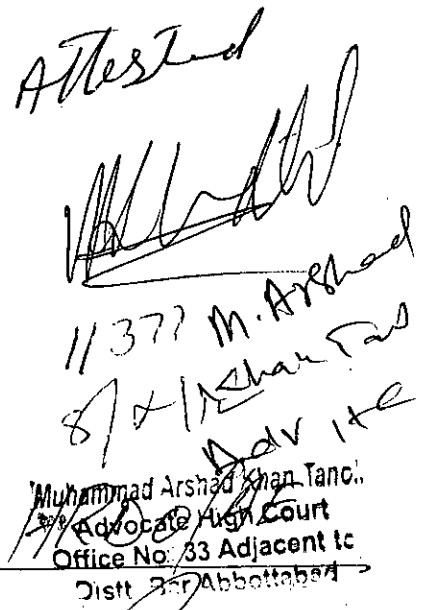 Attested
11377 M. Arshad
Khan Tan
Adv HC
Muhammad Arshad Khan Tano..
Advocate High Court
Office No. 33 Adjacent to
Distt. Bar Abbottabad